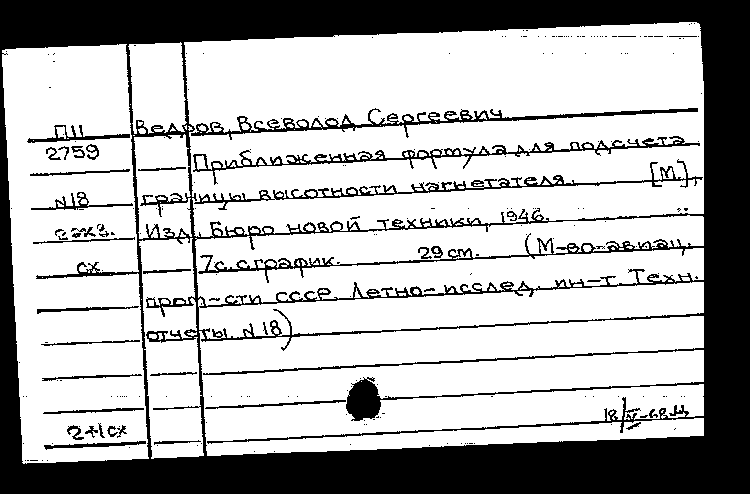 П11 Ведров, Всеволод Сергеевич
2759 Приближенная формула для подсчета
N18 границы высотности нагнетателя. [М.],
2 экз. Изд. Бюро новой техники, 1946.
сх 7 с. с график. 29 см. (М-во авиац.
пром-сти СССР. Летно-исслед. ин-т. Техн.
отчеты. N 18)
2+1сх